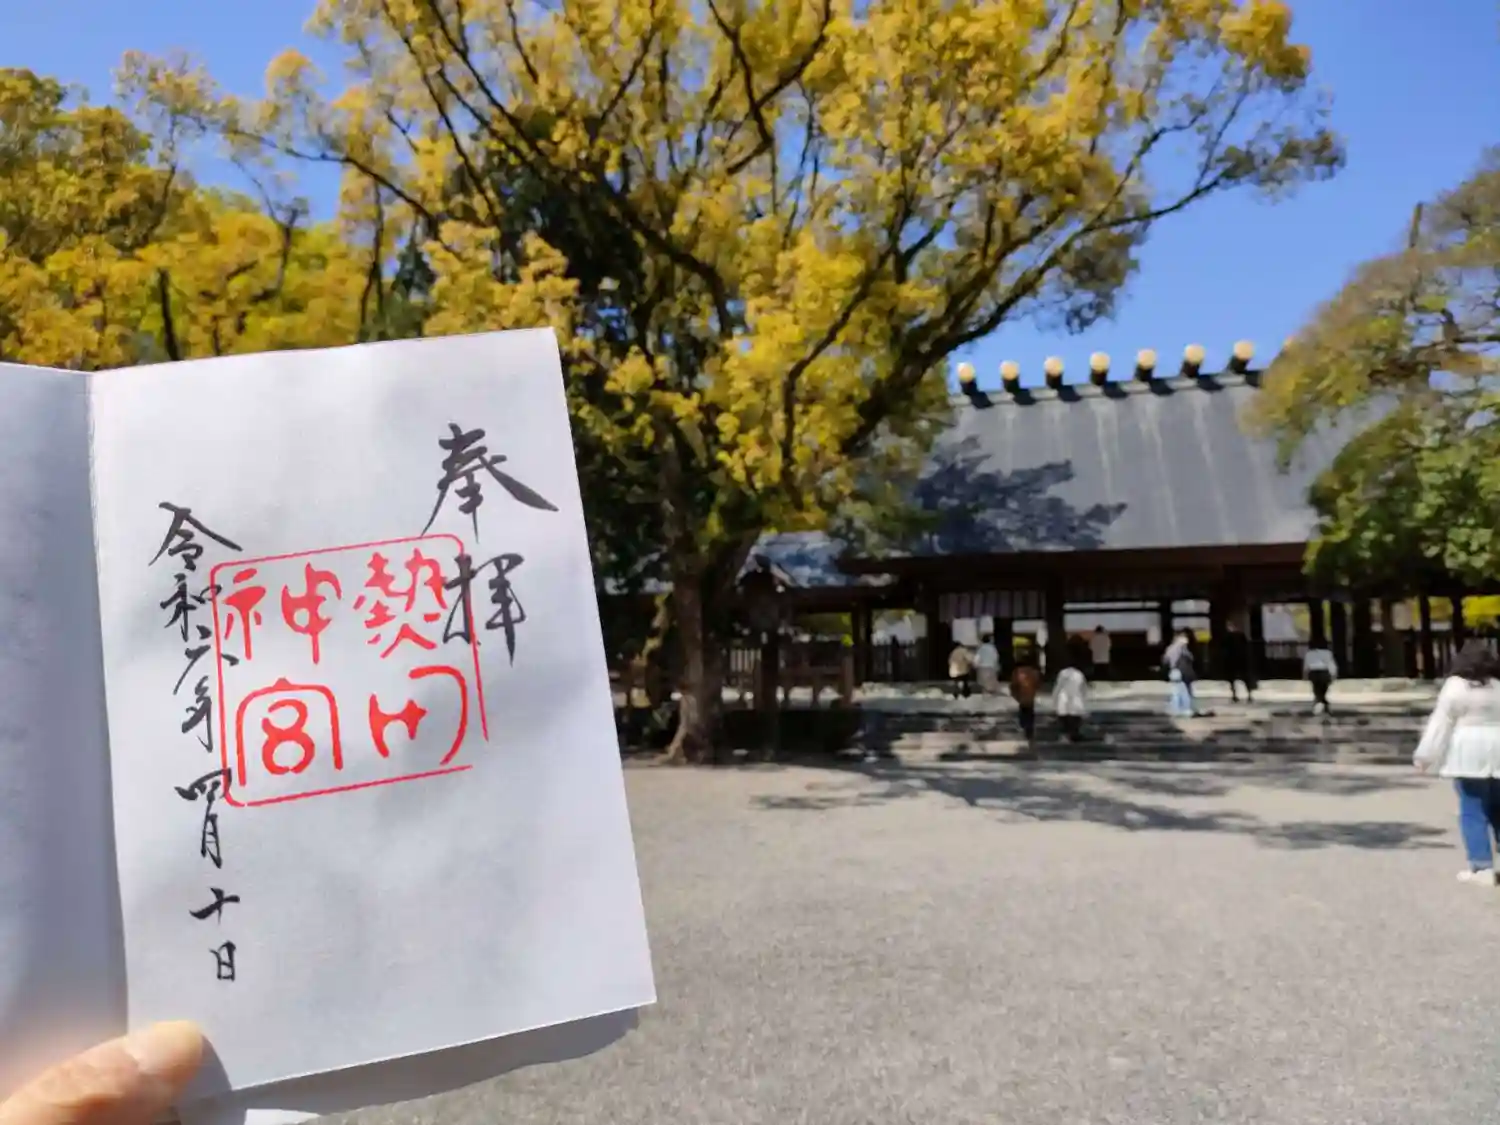 奉拝
熱田神宮
令和六年四月十日